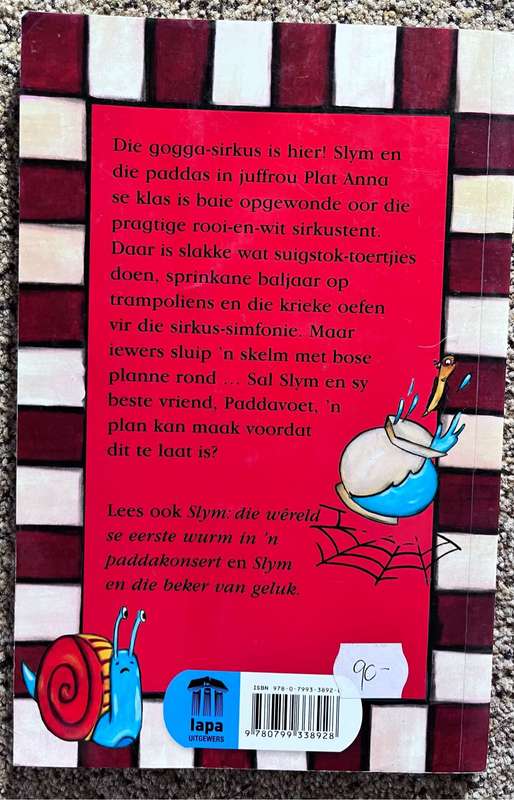 Die gogga-sirkus is hier! Slym en
die paddas in juffrou Plat-Anna
se klas is baie opgewonde oor die
pragtige rooi-en-wit sirkustent.
Daar is slakke wat suigstok-toertjies
doen, sprinkane baljaar op
trampoliens en die krieke oefen
vir die sirkus-simfonie. Maar
iewers sluip 'n skelm met bose
planne rond ... Sal Slym en sy
beste vriend, Paddavoet, 'n
plan kan maak voordat
dit te laat is?
Lees ook Slym: die wêreld
se eerste wurm in 'n
paddakonsert en Slym
en die beker van geluk.
90-
lapa
UITGEWERS
ISBN 978-0-7993-3892-
9 780799 338928